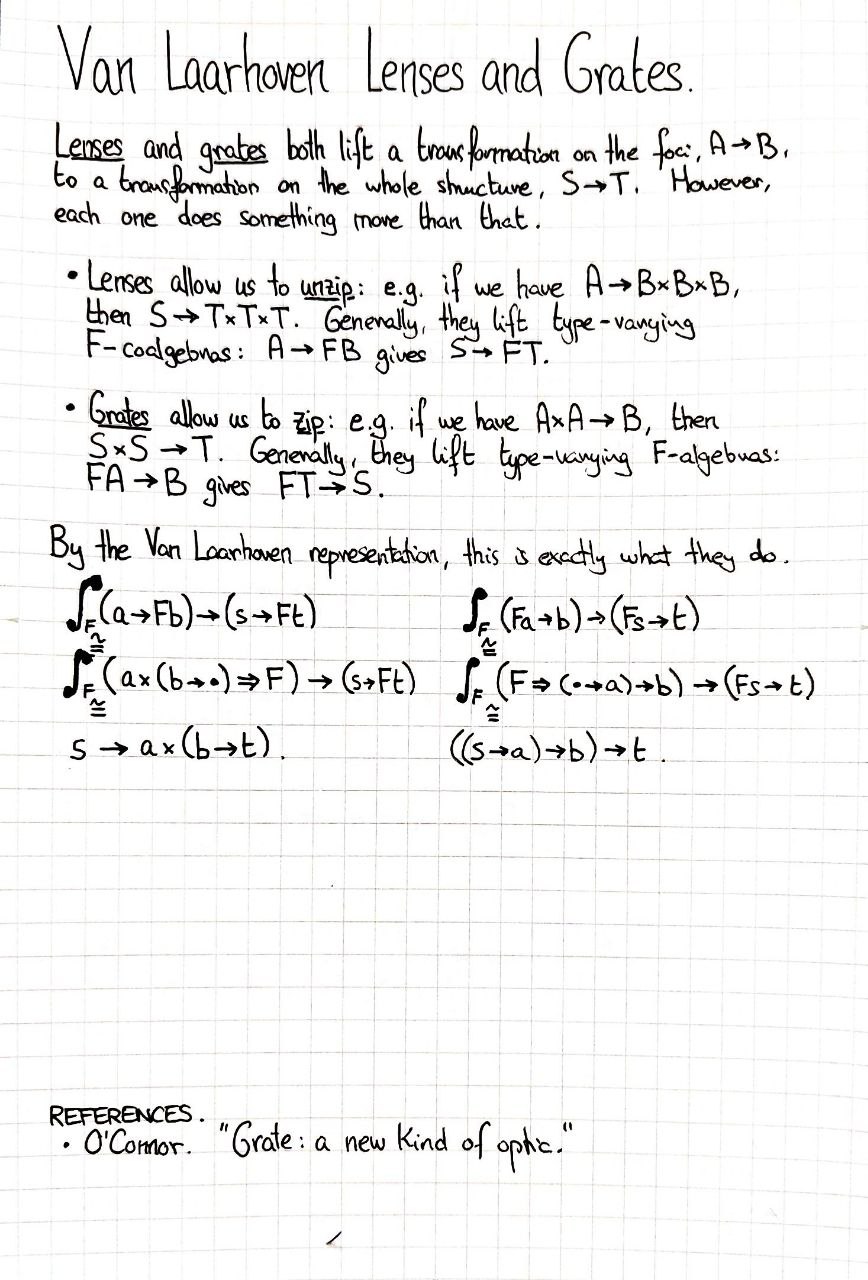 Van Laarhoven Lenses and Grates.
Lenses and grates both lift a transformation on the foci, A→B,
to a transformation on the whole structure, S→T. However,
each one does something more than that.
• Lenses allow us to unzip: e.g. if we have A→B×B×B,
then S→T×T×T. Generally, they lift type-varying
F-coalgebras: A→FB gives S→FT.
• Grates allow us to zip: e.g. if we have A×A→B, then
S×S→T. Generally, they lift type-varying F-algebras:
FA→B gives FT→S.
By the Van Laarhoven representation, this is exactly what they do.
∫_F (a→Fb)→(s→Ft)
≅
∫_F (a×(b→•)⇒F)→(s→Ft)
≅
s→a×(b→t).
∫_F (Fa→b)→(Fs→t)
≅
∫_F (F⇒(•→a)→b)→(Fs→t)
≅
((s→a)→b)→t.
REFERENCES.
• O'Connor. "Grate: a new kind of optic."